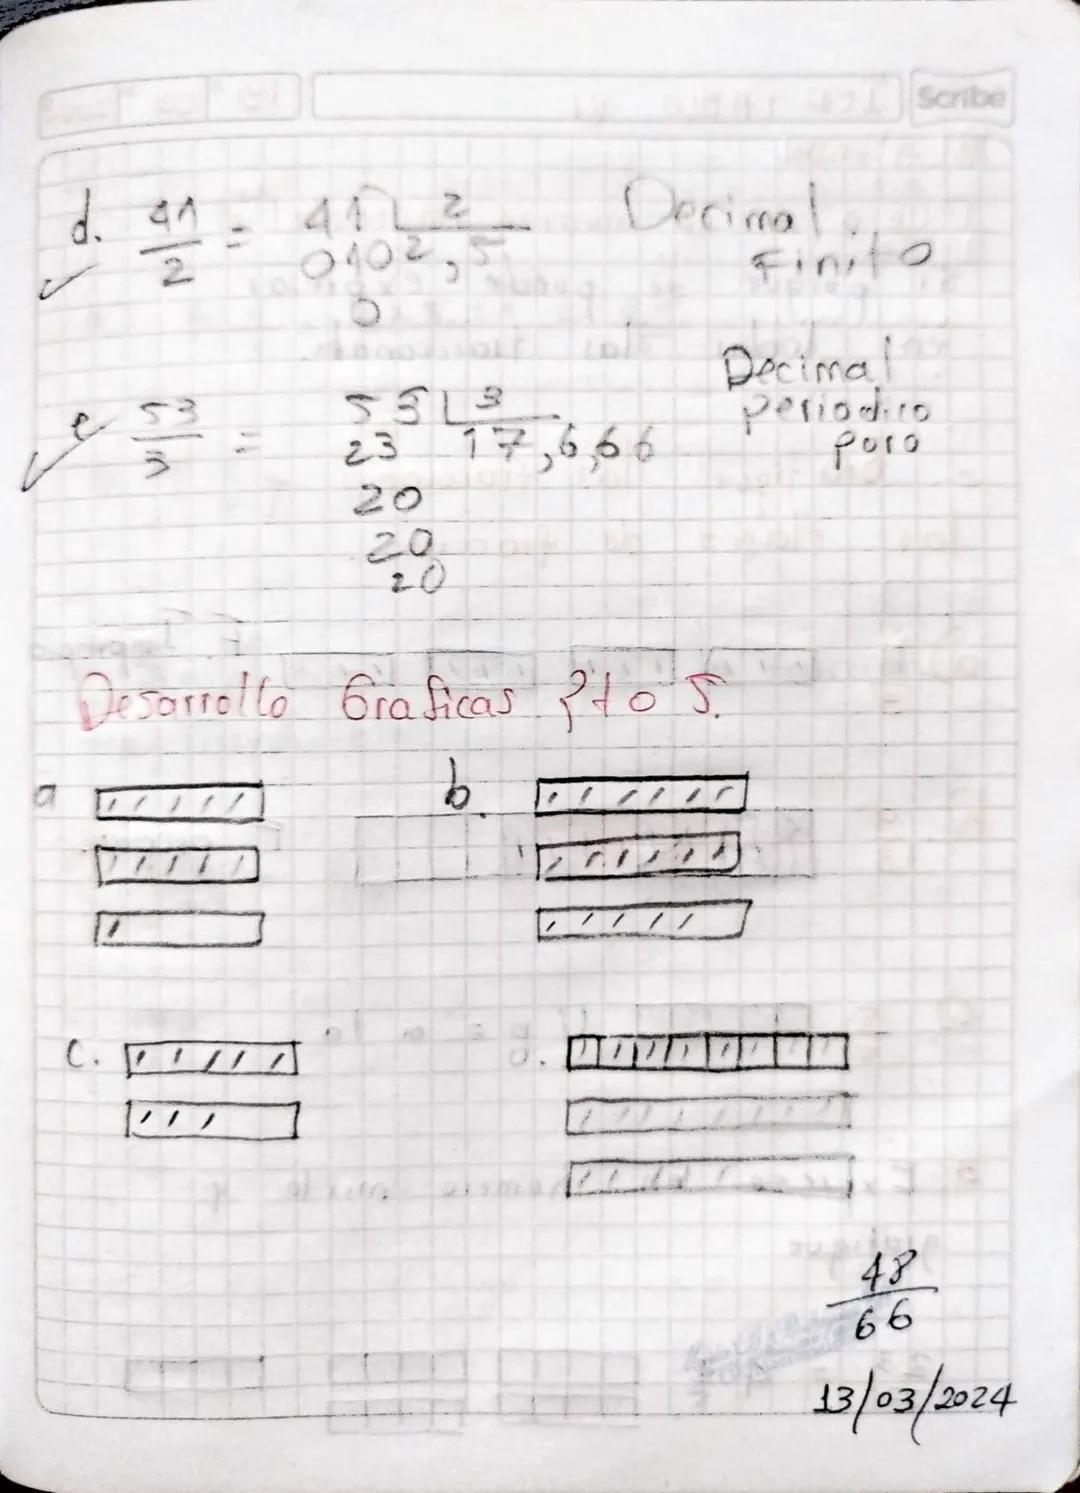 Scribe
d. 41/2 = 41 2 Decimal
0102,5 Finito
0
Decimal
e 53/3 = 53 3 periodico
23 17,6,66 puro
20
20
20
Desarrollo Graficas Pto 5.
a b.
c. D.
48/66
13/03/2024